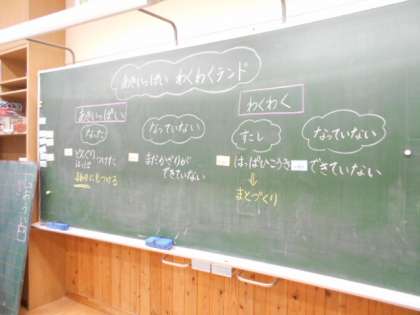 あきいっぱい わくわくランド
あきいっぱい
わくわく
なった
なっていない
すこし
なっていない
どんぐり
つけたす
まだかざりが
できていない
はっぱひこうき
できていない
まとづくり